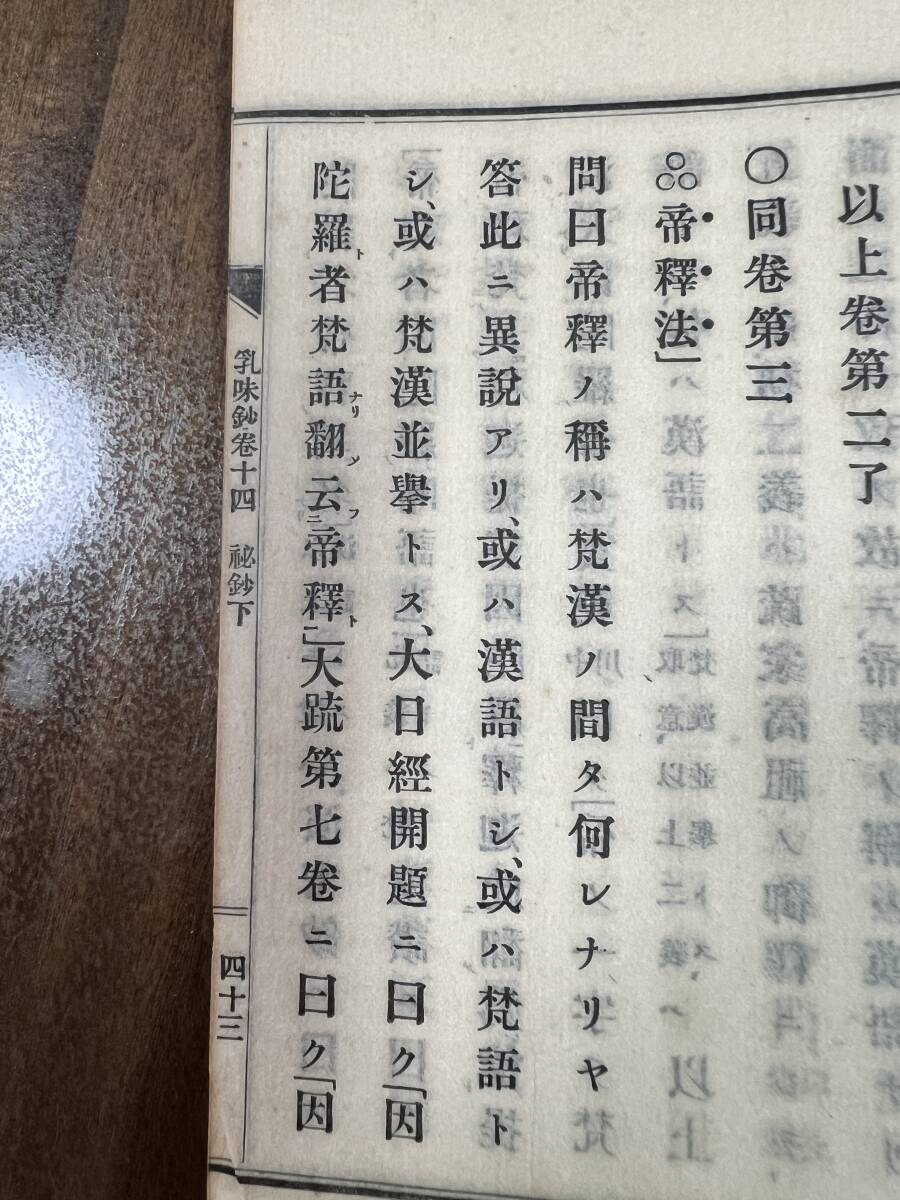 以上卷第二了
〇同卷第三
帝釋法」
問曰帝釋ノ稱ハ梵漢ノ間タ何レナリヤ
答此ニ異說アリ、或ハ漢語トシ、或ハ梵語ト
シ、或ハ梵漢並擧トス、大日經開題ニ曰ク「因
陀羅者梵語翻云帝釋」大疏第七卷ニ曰ク「因
乳味鈔卷十四 祕鈔下
四十三